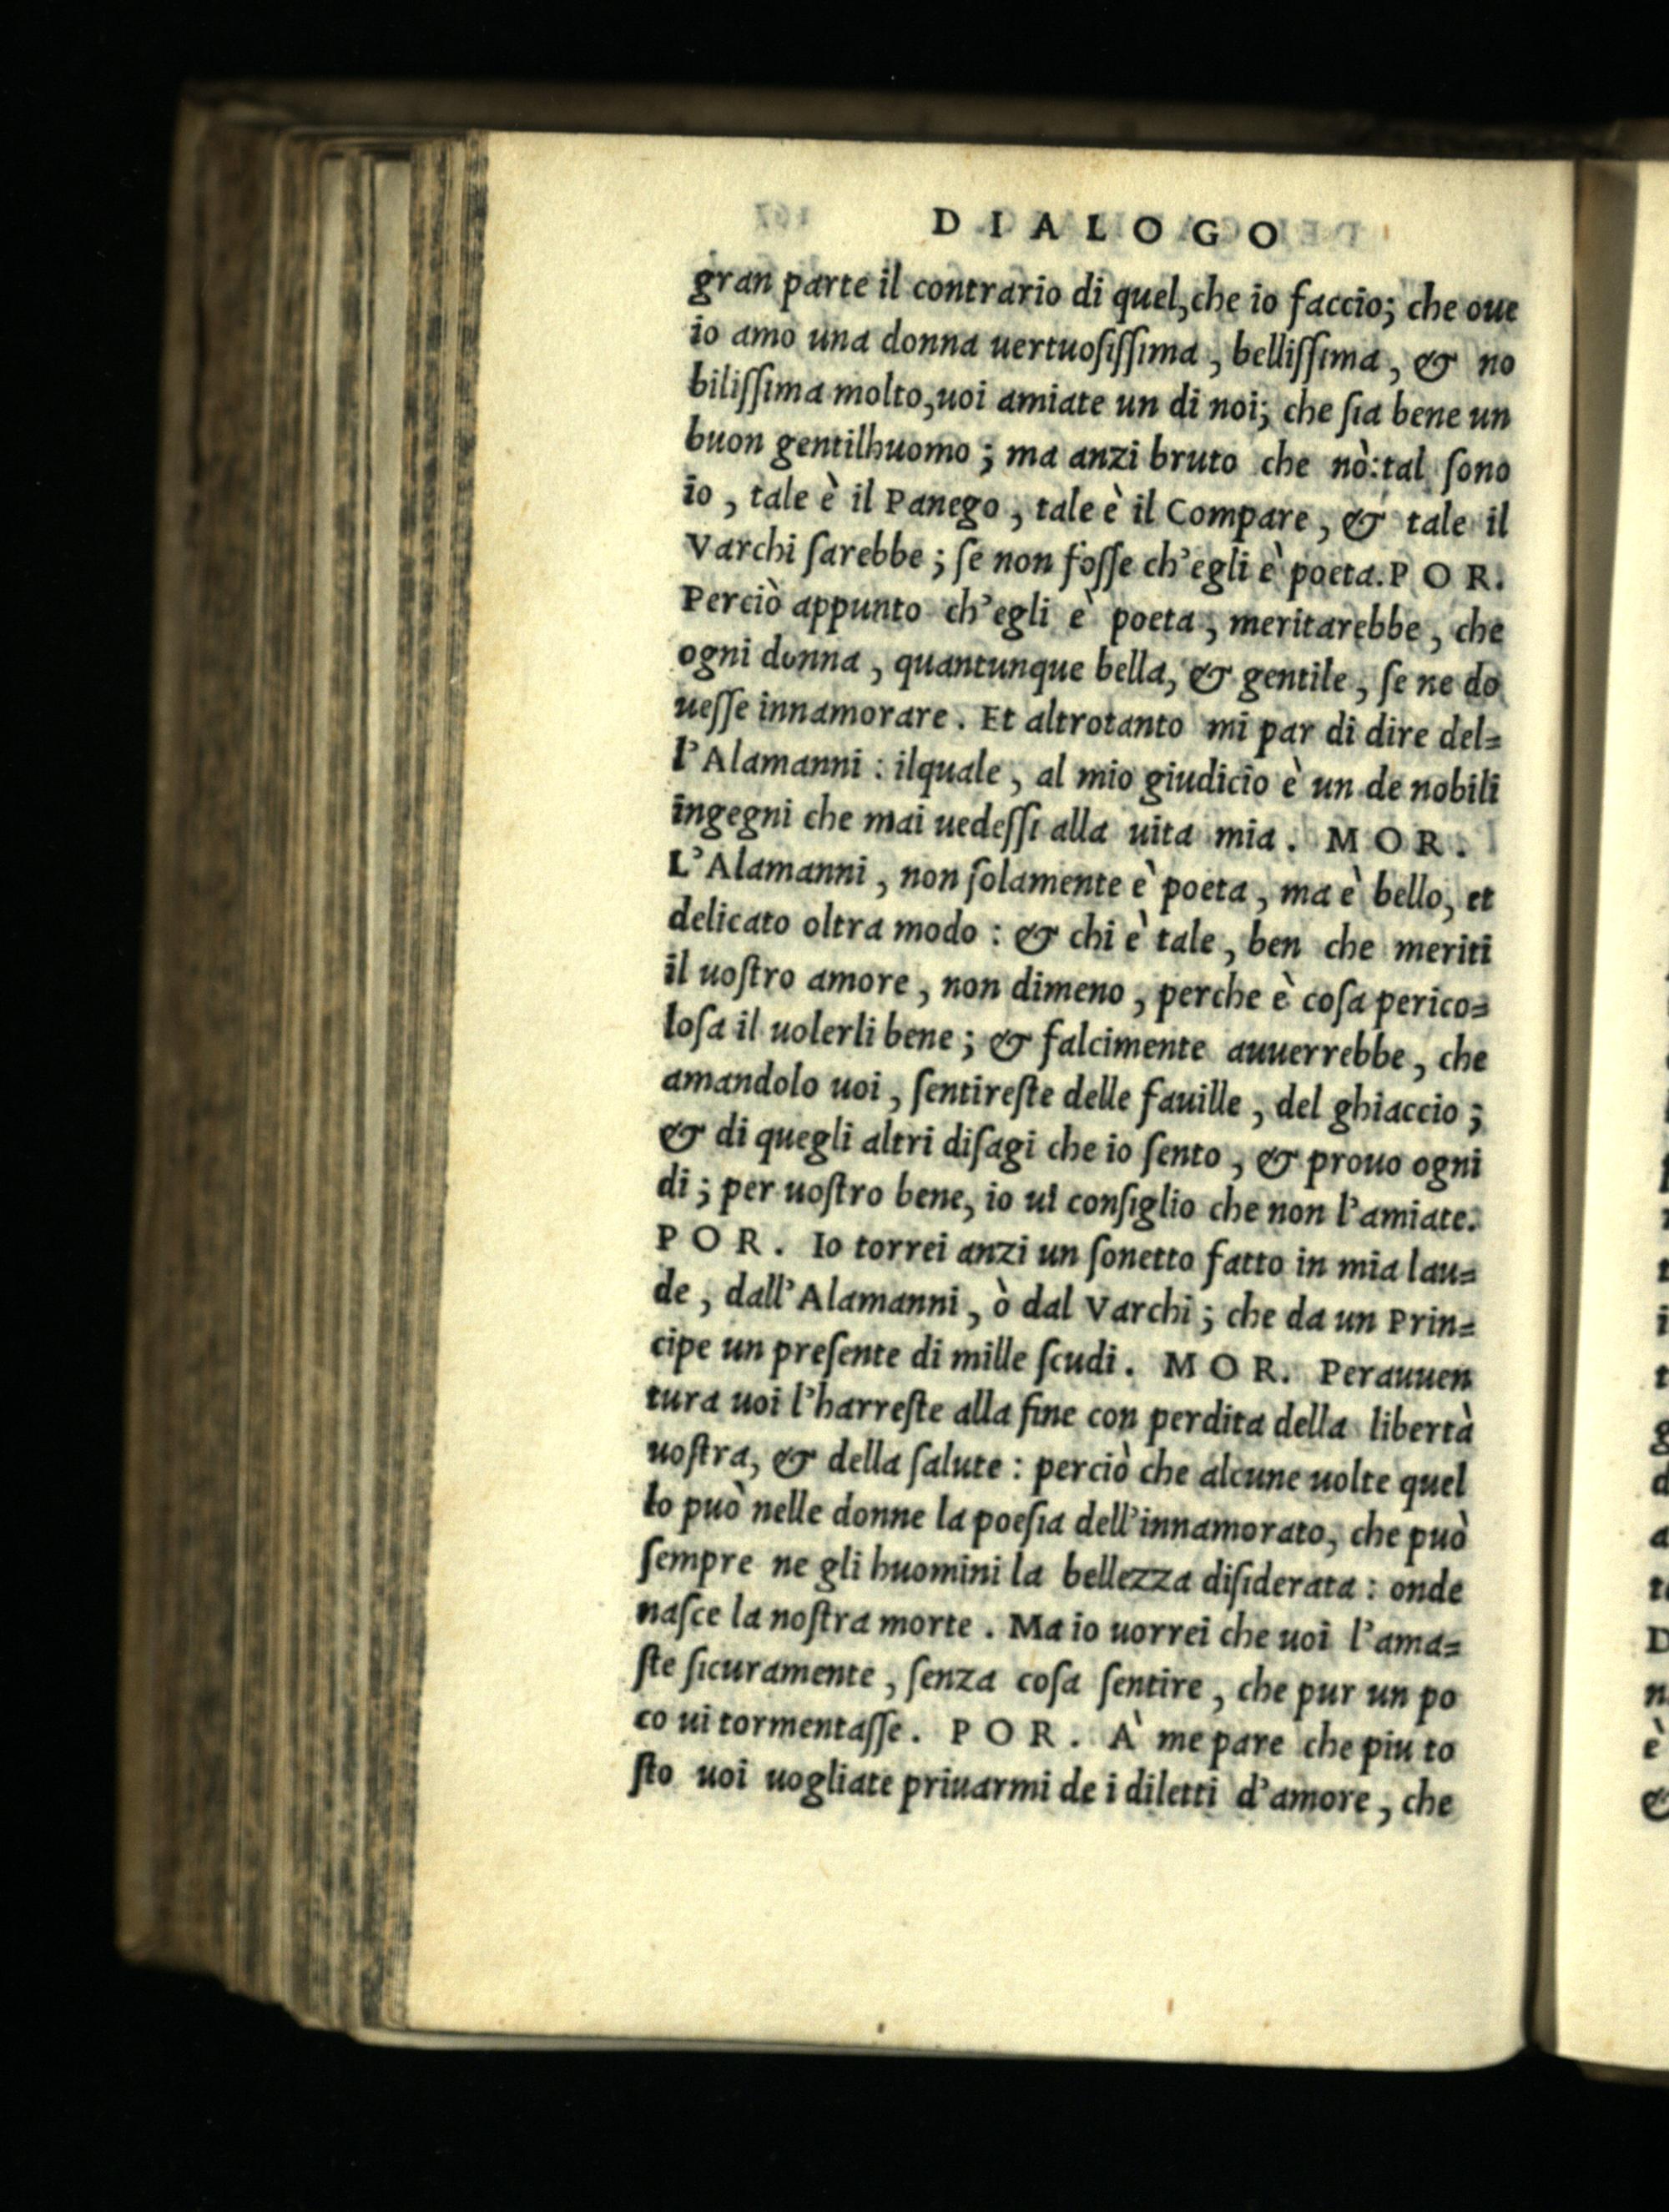 DIALOGO
gran parte il contrario di quel, che io faccio; che oue
io amo una donna uertuosissima, bellissima, & no
bilissima molto, uoi amiate un di noi; che sia bene un
buon gentilhuomo; ma anzi bruto che nò: tal sono
io, tale è il Panego, tale è il Compare, & tale il
Varchi sarebbe; se non fosse ch'egli è poeta. POR.
Perciò appunto ch'egli è poeta, meritarebbe, che
ogni donna, quantunque bella, & gentile, se ne do
uesse innamorare. Et altrotanto mi par di dire del=
l'Alamanni: ilquale, al mio giudicio è un de nobili
ingegni che mai uedessi alla uita mia. MOR.
L'Alamanni, non solamente è poeta, ma è bello, et
delicato oltra modo: & chi è tale, ben che meriti
il uostro amore, non dimeno, perche è cosa perico=
losa il uolerli bene; & falcimente auuerrebbe, che
amandolo uoi, sentireste delle fauille, del ghiaccio;
& di quegli altri disagi che io sento, & prouo ogni
di; per uostro bene, io ui consiglio che non l'amiate.
POR. Io torrei anzi un sonetto fatto in mia lau=
de, dall'Alamanni, ò dal Varchi; che da un Prin=
cipe un presente di mille scudi. MOR. Perauuen
tura uoi l'harreste alla fine con perdita della libertà
uostra, & della salute: perciò che alcune uolte quel
lo può nelle donne la poesia dell'innamorato, che può
sempre ne gli huomini la bellezza disiderata: onde
nasce la nostra morte. Ma io uorrei che uoi l'ama=
ste sicuramente, senza cosa sentire, che pur un po
co ui tormentasse. POR. À me pare che piu to
sto uoi uogliate priuarmi de i diletti d'amore, che